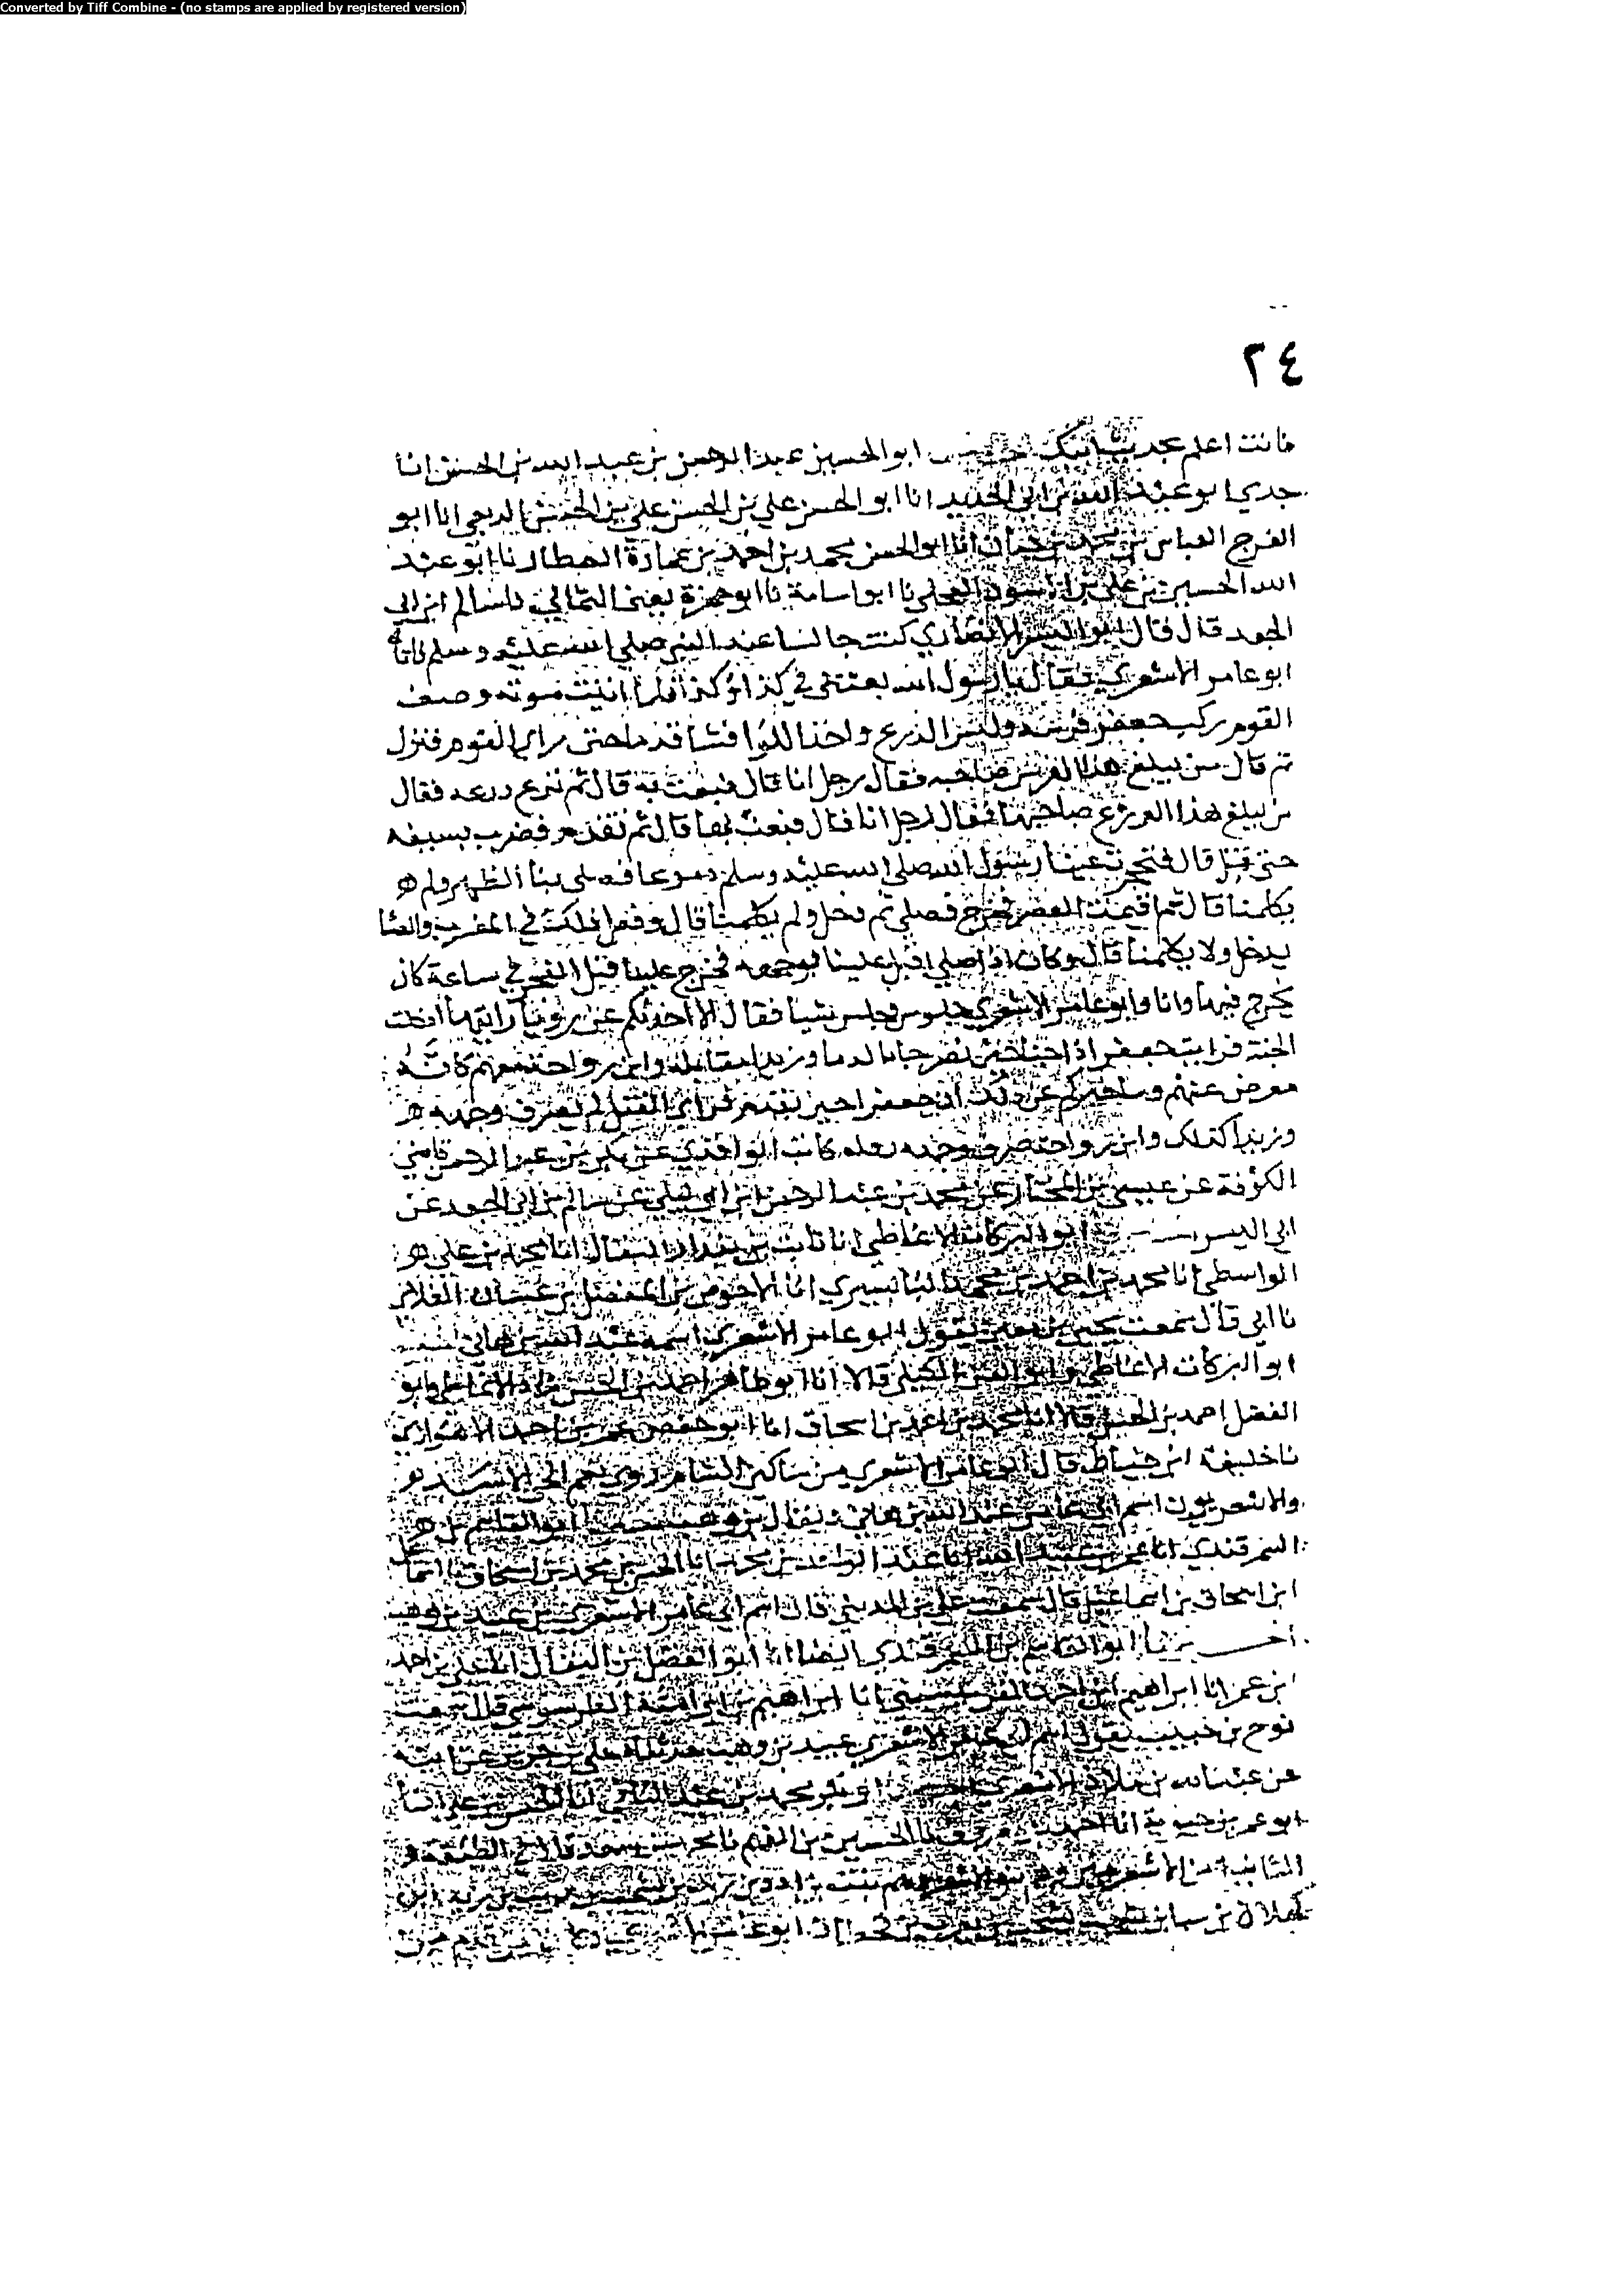 Converted by Tiff Combine - (no stamps are applied by registered version)
٢٤
فانت اعلم بحديث ابو الحسين عبد الرحمن بن عبد الله بن الحسن انا
جدي ابو عبد الله بن ابي الحديد انا ابو الحسن علي بن الحسن علي بن الحسن الربعي انا ابو
الفرج العباس بن محمد بن حبان انا ابو الحسن محمد بن احمد بن عمارة العطار نا ابو عبد
الله الحسين بن علي بن الاسود العجلي نا ابو اسامة نا ابو حمزة يعني الثمالي نا سالم ابن ابي
الجعد قال قال ابو اليسر الانصاري كنت جالسا عند النبي صلى الله عليه وسلم فاتاه
ابو عامر الاشعري فقال يا رسول الله بعثتني في كذا وكذا فلما اتيت موته وصف
القوم ركب جعفر فرسه ولبس الدرع واخذ اللوا فمشا قدما حتى راى القوم فنزل
ثم قال من يبلغ هذا الفرس صاحبه فقال رجل انا قال فبعث به قال ثم نزع درعه فقال
من يبلغ هذا الدرع صاحبها فقال رجل انا قال فبعث بها قال ثم تقدم فضرب بسيفه
حتى قتل قال فتحجرت عينا رسول الله صلى الله عليه وسلم دموعا فصلى بنا الظهر ولم
يكلمنا قال ثم اقيمت العصر فخرج فصلى ثم دخل ولم يكلمنا قال وفعل ذلك في المغرب والعشا
يدخل ولا يكلمنا قال وكان اذا صلى اقبل علينا بوجهه فخرج علينا قبل الفجر في ساعة كان
يخرج فيها وانا وابو عامر الاشعري جلوس فجلس بيننا فقال الا اخبركم عن رويا رايتها ادخلت
الجنة فرايت جعفرا ذا جناحين مضرجا بالدما وزيد مقابله وابن رواحة معهم كانه
معرض عنهم وساخبركم عن ذلك ان جعفرا حين تقدم فراى القتل لم يصرف وجهه
وزيد كذلك وابن رواحة صرف وجهه رواه كاتب الواقدي عن بكر بن عبد الرحمن قاضي
الكوفة عن عيسى بن المختار عن محمد بن عبد الرحمن ابن ابي ليلى عن سالم بن ابي الجعد عن
ابي اليسر ابو البركات الانماطي انا ثابت بن بندار البقال انا محمد بن علي
الواسطي انا محمد بن احمد بن محمد البابسيري انا الاحوص بن المفضل بن غسان الغلابي
نا ابي قال سمعت يحيى بن معين يقول ابو عامر الاشعري اسمه عبد الله بن هاني
ابو البركات الانماطي وابو العز الكيلي قالا انا ابو طاهر احمد بن الحسن زاد الانماطي وابو
الفضل احمد بن الحسن قالا انا محمد بن احمد بن اسحاق انا ابو حفص عمر بن احمد الاهوازي
نا خليفة ابن خياط قال ابو عامر الاشعري من ساكني الشام
والاشعريون اسم ابي عامر عبد الله بن هاني ويقال بن وهب ابو القاسم بن
السمرقندي انا عمر بن عبيد الله انا عبد الواحد بن محمد انا الحسن بن محمد بن اسحاق نا اسماعيل
ابن اسحاق بن اسماعيل قال سمعت علي بن المديني قال اسم ابي عامر الاشعري عبيد بن وهب
اخبرنا ابو القاسم بن السمرقندي ايضا انا ابو الفضل بن البقال احمد
ابن عمر انا ابراهيم بن احمد القرميسيني انا ابراهيم بن ابي امية الطرسوسي قال سمعت
نوح بن حبيب يقول اسم ابي عامر الاشعري عبيد بن وهب
الاشعري ابو بكر محمد بن عبد الباقي انا الحسن بن علي انا
ابو عمر بن حيوية انا احمد بن معروف نا الحسين بن الفهم نا محمد بن سعد قال في الطبقة
الثانية من الاشعريين
كهلان بن سبا بن يشجب بن يعرب بن قحطان ابو عامر